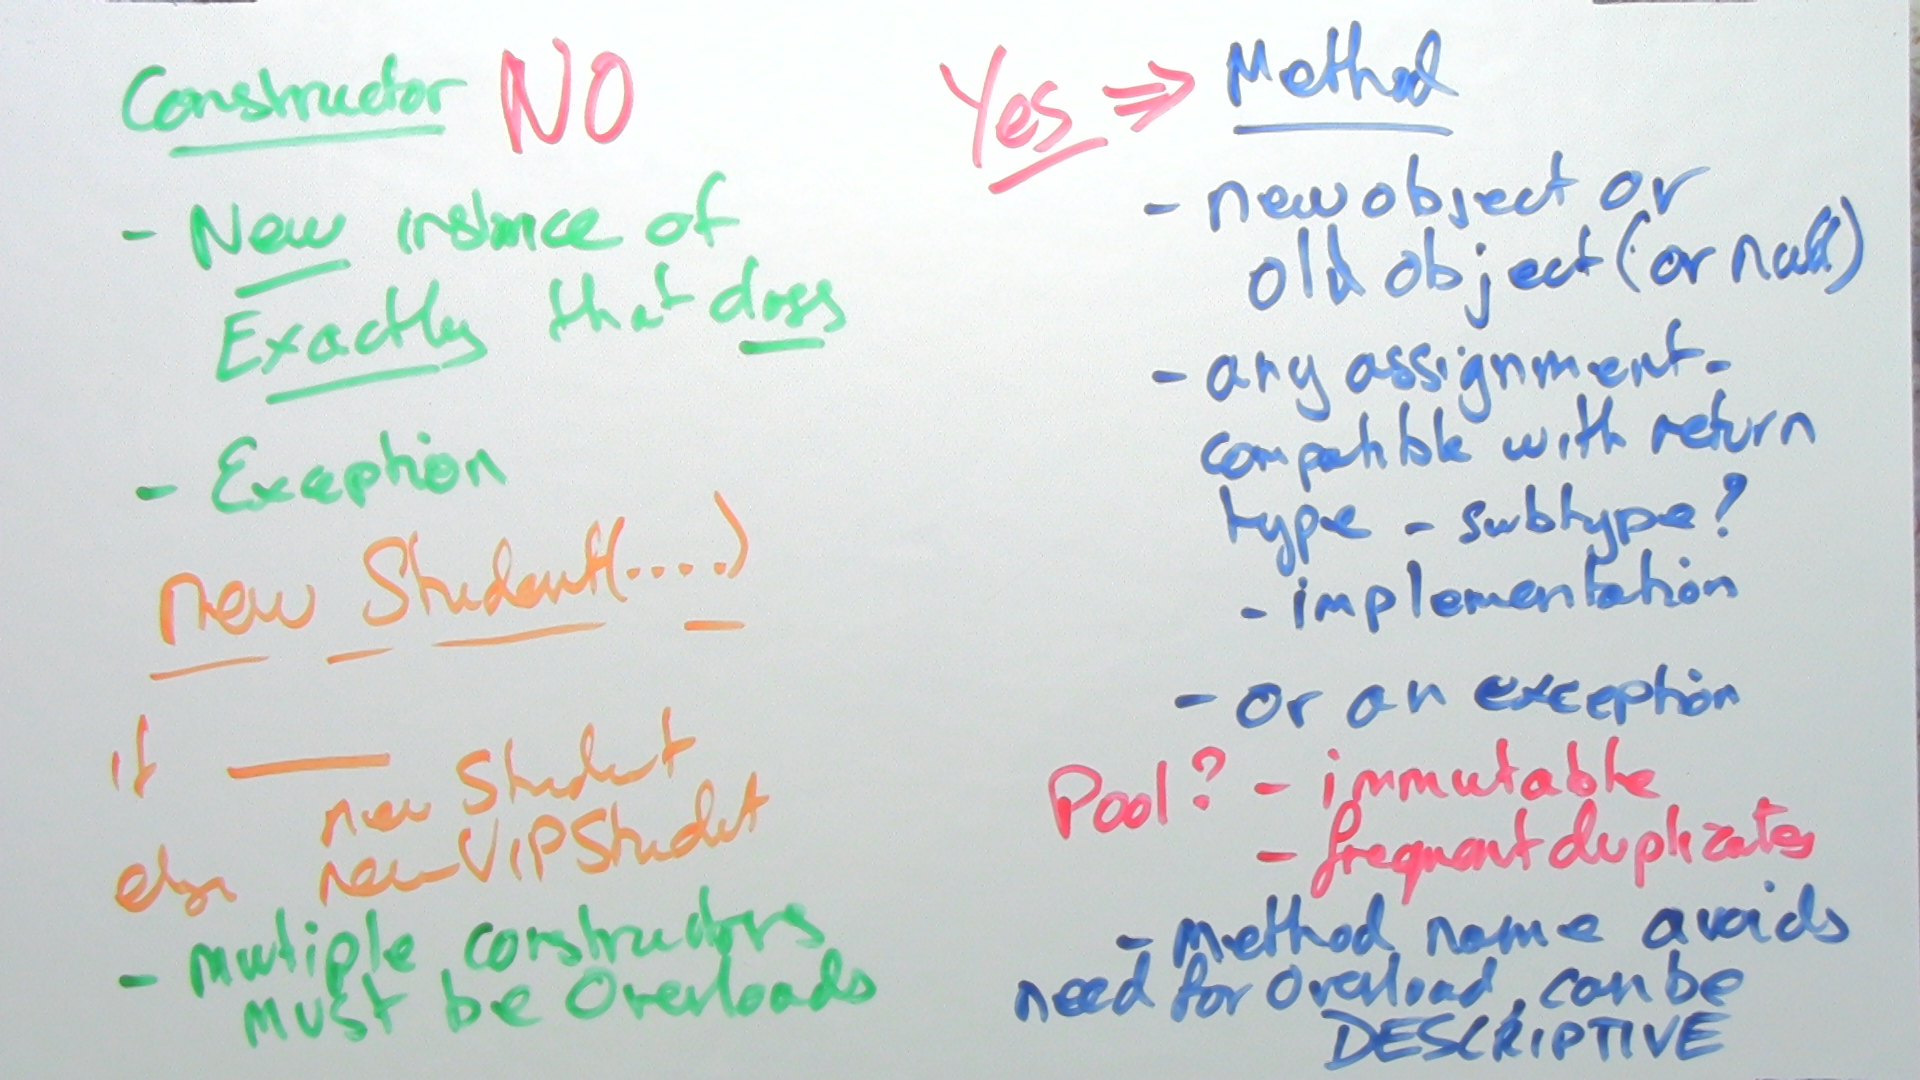 Constructor NO
- New instance of
Exactly that class
- Exception
new Student(....)
if
new Student
else new VIPStudent
- multiple constructors
must be Overloads
Yes ⇒ Method
- new object or
old object (or null)
- any assignment-
compatible with return
type - subtype?
- implementation
- or an exception
Pool? - immutable
- frequent duplicates
- method name avoids
need for overload, can be
DESCRIPTIVE